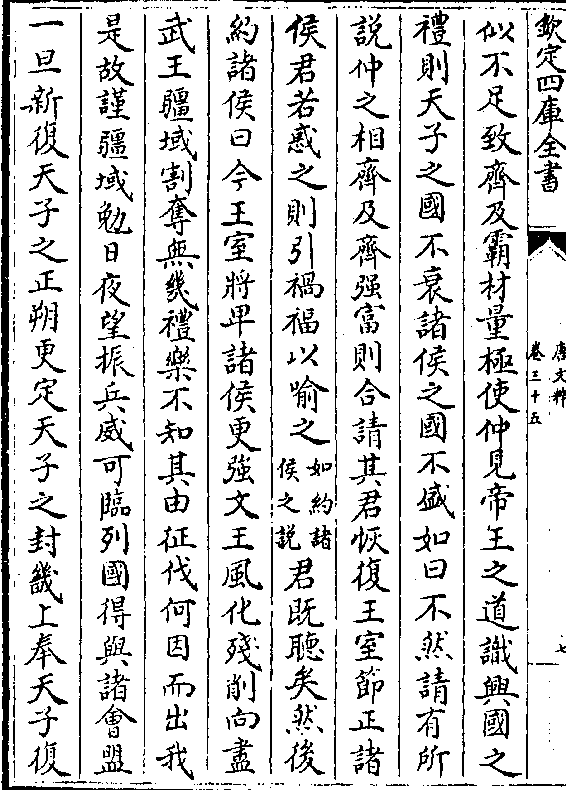 欽定四庫全書
唐文粹
卷三十五
七
似不足致齊及霸材量極使仲見帝王之道識興國之
禮則天子之國不衰諸侯之國不盛如曰不然請有所
說仲之相齊及齊强富則合請其君恢復王室節正諸
侯君若惑之則引禍福以喻之如約諸侯之說君既聽矣然後
約諸侯曰今王室將卑諸侯更強文王風化殘削向盡
武王疆域割奪無幾禮樂不知其由征伐何因而出我
是故謹疆域勉日夜望振兵威可臨列國得與諸會盟
一旦新復天子之正朔更定天子之封畿上奉天子復